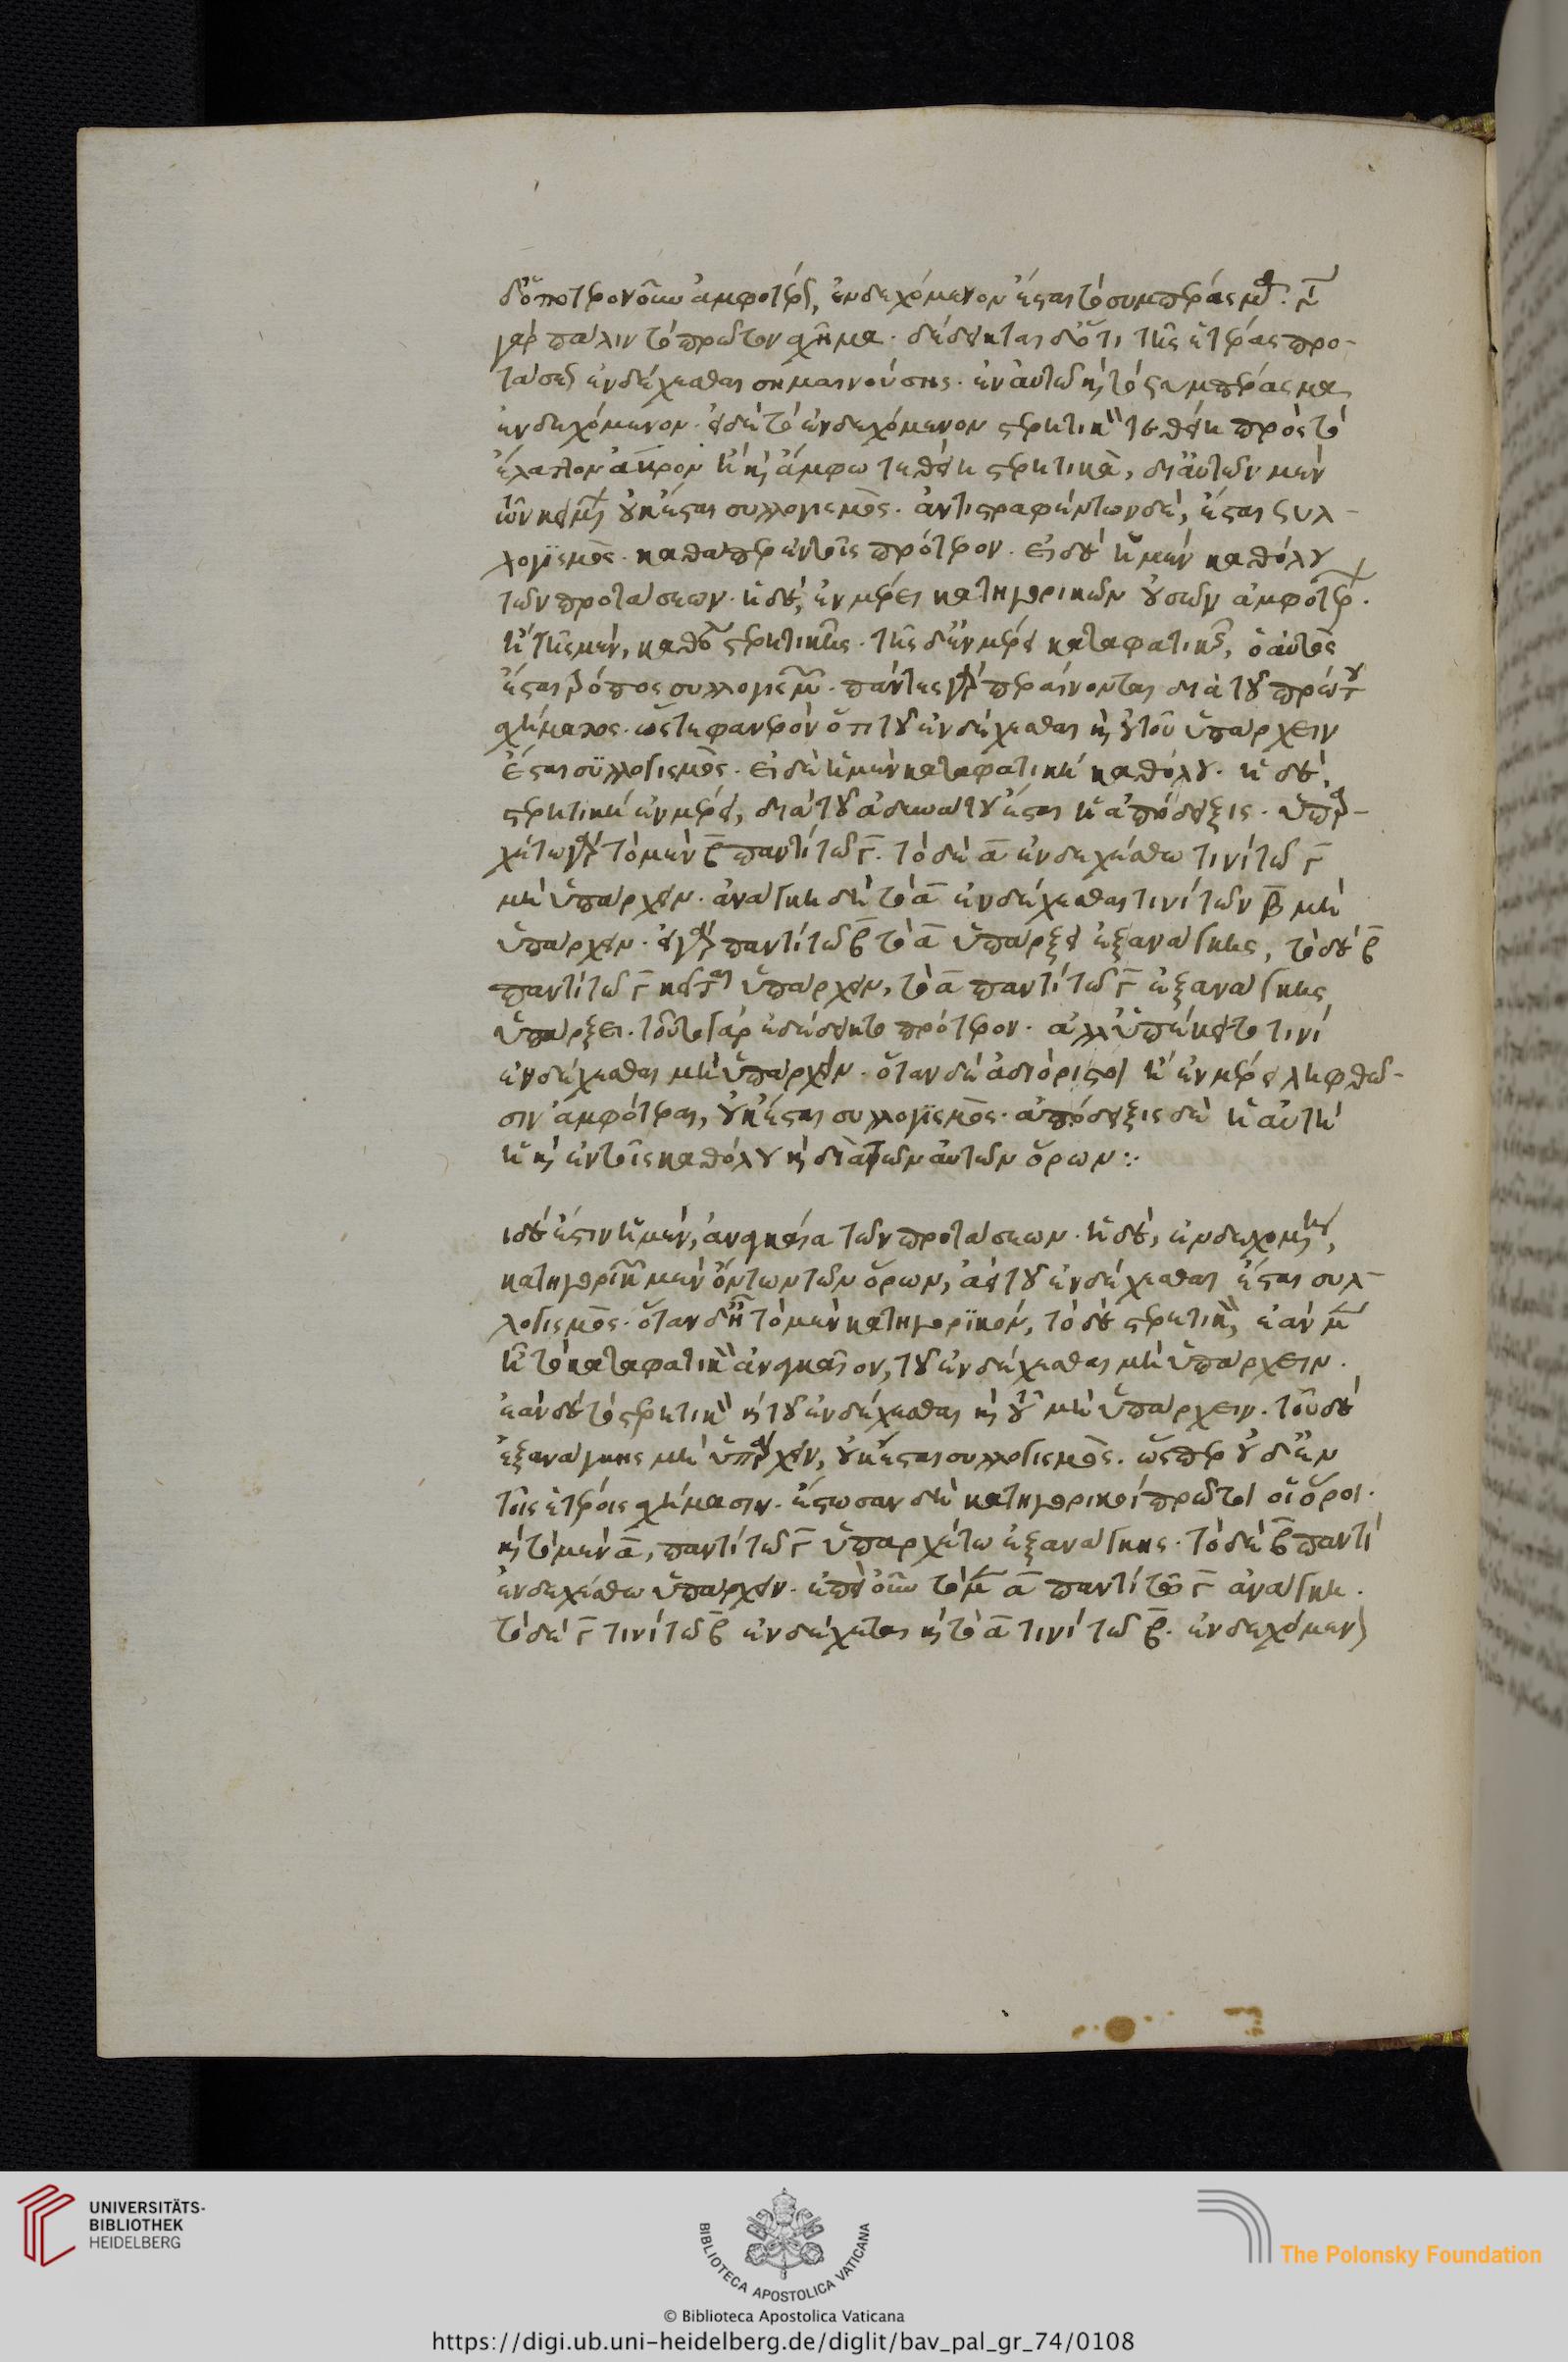 δ' ὁποτερονοῦν ἀμφοτέρως, ἐνδεχόμενον ἔσται τὸ συμπέρασμα.
γὰρ πάλιν τὸ πρῶτον σχῆμα. δέδεικται δ' ὅτι τῆς ἑτέρας προ-
τάσεως ἐνδέχεσθαι σημαινούσης. ἐν αὐτῶ καὶ τὸ συμπέρασμα
ἐνδεχόμενον. εἰ δὲ τὸ ἐνδεχόμενον στερητικὸν τεθείη πρὸς τὸ
ἔλαττον ἄκρον ἢ καὶ ἄμφω τεθείη στερητικὰ, δι' αὐτῶν μὲν
τῶν κειμένων οὐκ ἔσται συλλογισμὸς. ἀντιστραφέντων δὲ, ἔσται συλ-
λογϊσμὸς. καθάπερ ἐν τοῖς πρότερον. εἰ δὲ ἡ μὲν καθόλου
τῶν προτάσεων. ἡ δὲ, ἐν μέρει κατηγορικῶν οὐσῶν ἀμφοτέρων.
ἢ τῆς μὲν, καθόλου στερητικῆς. τῆς δ' ἐν μέρει καταφατικῆς, ὁ αὐτὸς
ἔσται τρόπος συλλογισμῶν. πάντες γὰρ περαίνονται διὰ τοῦ πρώτου
σχήματος. ὥστε φανερὸν ὅτι τοῦ ἐνδέχεσθαι καὶ οὐ τοῦ ὑπάρχειν
ἔσται συλλογισμὸς. εἰ δὲ ἡ μὲν καταφατικὴ καθόλου. ἡ δὲ,
στερητικὴ ἐν μέρει, διὰ τοῦ ἀδυνάτου ἔσται ἡ ἀπόδειξις. ὑπαρ-
χέτω γὰρ τὸ μὲν β παντὶ τῶ γ. τὸ δὲ α ἐνδεχέσθω τινὶ τῶ γ
μὴ ὑπάρχειν. ἀνάγκη δὴ τὸ α ἐνδέχεσθαι τινὶ τῶν β μὴ
ὑπάρχειν. εἰ γὰρ παντὶ τῶ β τὸ α ὑπάρξει ἐξανάγκης, τὸ δὲ β
παντὶ τῶ γ κεῖται ὑπάρχειν, τὸ α παντὶ τῶ γ ἐξανάγκης
ὑπάρξει. τοῦτο γὰρ ἐδέδεικτο πρότερον. ἀλλ' ὑπέκειτο τινὶ
ἐνδέχεσθαι μὴ ὑπάρχειν. ὅταν δὲ ἀδιόριστοι ἢ ἐν μέρει ληφθῶ-
σιν ἀμφότεραι, οὐκ ἔσται συλλογϊσμὸς. ἀπόδειξις δὲ ἡ αὐτὴ
ἣ καὶ ἐν τοῖς καθόλου καὶ διὰ τῶν αὐτῶν ὅρων :·
ἰδέ ἐστιν ἡ μὲν, ἀναγκαία τῶν προτάσεων. ἡ δὲ, ἐνδεχομένη,
κατηγορικῶν μὲν ὄντων τῶν ὅρων, ἀεὶ τοῦ ἐνδέχεσθαι ἔσται συλ-
λογισμὸς. ὅταν δ' ἦ τὸ μὲν κατηγορϊκὸν, τὸ δὲ στερητικὸν, ἐὰν μὲν
ἦ τὸ καταφατικὸν ἀναγκαῖον, τοῦ ἐνδέχεσθαι μὴ ὑπάρχειν.
ἐὰν δὲ τὸ στερητικὸν καὶ τοῦ ἐνδέχεσθαι καὶ τοῦ μὴ ὑπάρχειν. τοῦ δὲ
ἐξανάγκης μὴ ὑπάρχειν, οὐκ ἔσται συλλογισμὸς. ὥσπερ οὐδ' ἐν
τοῖς ἑτέροις σχήμασιν. ἔστωσαν δὴ κατηγορικοὶ πρῶτοι οἱ ὅροι.
καὶ τὸ μὲν α, παντὶ τῶ γ ὑπαρχέτω ἐξανάγκης. τὸ δὲ β παντὶ
ἐνδεχέσθω ὑπάρχειν. ἐπεὶ οὖν τὸ μὲν α παντὶ τῶ γ ἀνάγκη.
τὸ δὲ γ τινὶ τῶ β ἐνδέχεται καὶ τὸ α τινὶ τῶ β. ἐνδεχόμενον
UNIVERSITÄTS-
BIBLIOTHEK
HEIDELBERG
BIBLIOTECA APOSTOLICA VATICANA
The Polonsky Foundation
© Biblioteca Apostolica Vaticana
https://digi.ub.uni-heidelberg.de/diglit/bav_pal_gr_74/0108